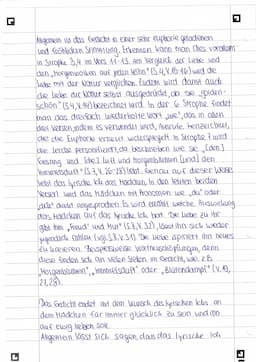 Allgemein ist das Gedicht in einer sehr euphorie geladenen
und fröhlichen Stimmung. Erkennen kann man dies vor allem
in Strophe 3,4 im Vers 11-13. Am Vergleich der Liebe und
den „Morgenwolken auf jenen Höhn" (S.4, V.15-16) wird die
Liebe mit der Natur verglichen. Zudem wird damit auch
die Liebe der Natur selbst ausgedrückt, da sie „golden-
schön" (S.4, V.14) bezeichnet wird. In der 6. Strophe findet
man das dreifach wiederholte Wort „wie", das in allen
drei Versen, indem es verwendet wird, Ausrufe kennzeichnet,
die die Euphorie erneut widerspiegelt. In Strophe 7 wird
die Lerche personifiziert, da beschrieben wie sie „[den]
Gesang und [die] Luft und Morgenblumen [und] den
Himmelsduft" (S.7, V. 26-28) liebt. Genau auf dieser Weise
liebt das lyrische Ich das Mädchen. In den letzten beiden
Versen wird das Mädchen mit Pronomen wie „du" oder
„dich" direkt angesprochen. Es wird erzählt welche Auswirkung
das Mädchen auf das lyrische Ich hat. Die Liebe zu ihr
gibt ihm „Freud' und Mut" (S.8, V.32), lässt ihn sich wieder
jugendlich fühlen (vgl. S.8, V.31). Die Liebe inspiriert ihn neues
zu kreieren. Beispielsweise Wortneuschöpfungen, denn
diese finden sich an vielen Stellen im Gedicht, wie z.B.
„Morgenblumen", „Himmelsduft" oder „Blütendampf" (V.19,
27, 28).
Das Gedicht endet mit dem Wunsch des lyrischen Ichs an
dem Mädchen für immer glücklich zu sein und ihn
auf ewig lieben soll.
Allgemein lässt sich sagen, dass das lyrische Ich